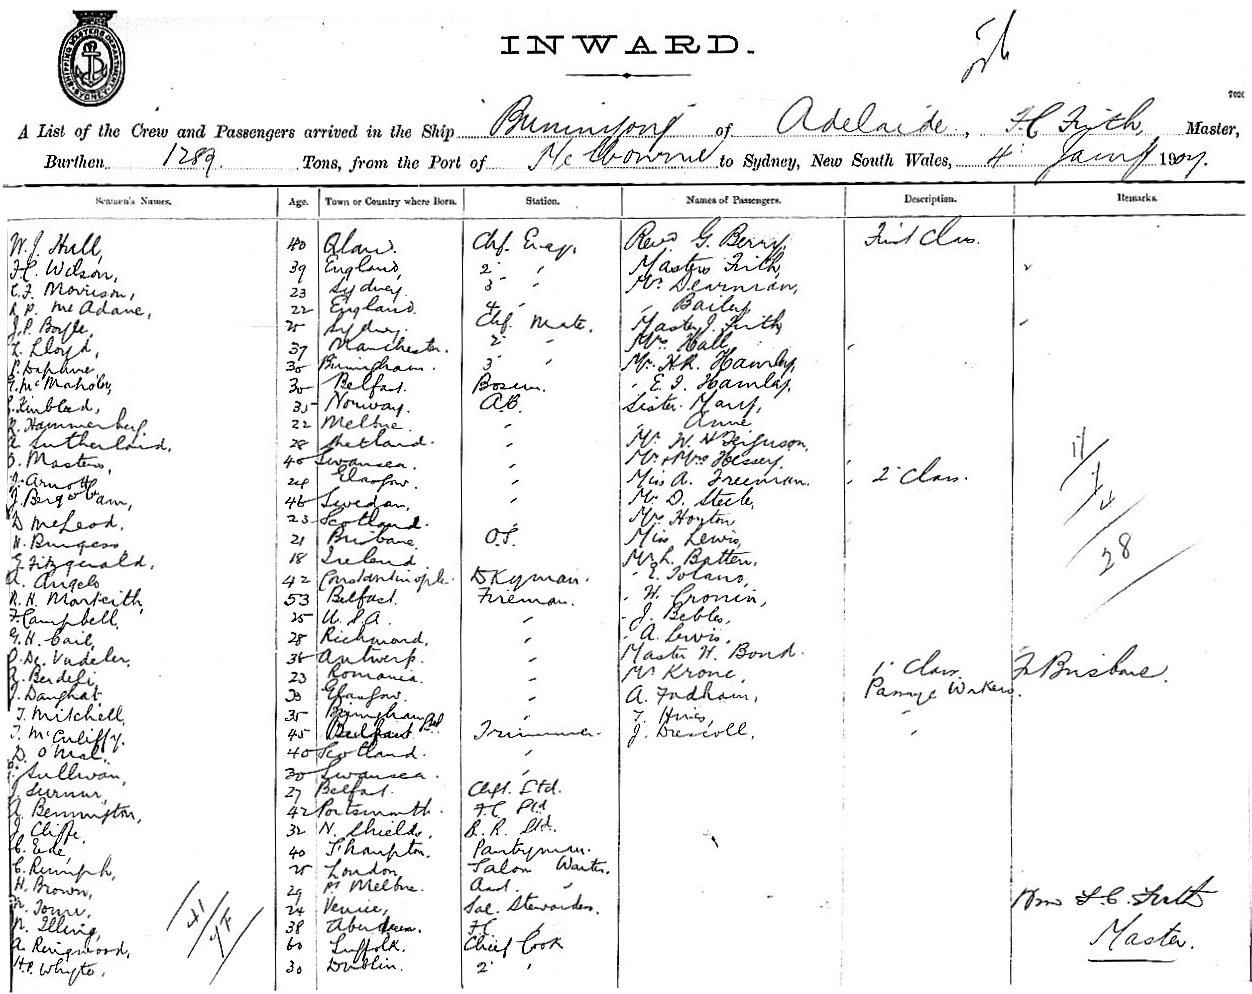 SHIPPING MASTERS DEPARTMENT SYDNEY
INWARD.
7020
A List of the Crew and Passengers arrived in the Ship Buninyong of Adelaide, F C Firth, Master,
Burthen 1289. Tons, from the Port of Melbourne to Sydney, New South Wales, 4 Jany 1907.
Seamen's Names. Age. Town or Country where Born. Station. Names of Passengers. Description. Remarks.
W. J. Hull, 40 Chf. Engr. Revd G. Berry, First Class.
F. C. Wilson, 39 England, 2 " Masters Firth,
C. F. Morrison, 23 Sydney. 3 " Mr Dearman,
R. P. McAdane, 22 England. 4 " " Bailey
J. P. Boyle, 25 Sydney. Chf. Mate. Master J. Firth
L. Lloyd, 37 Manchester. 2 " Mrs Hall,
P. Daphne 30 Birmingham. 3 " Mr. H. R. Hamley,
McMahoby 30 Belfast. Bosun. " E. J. Hamley,
Kinblad, 35 Norway. A.B. Sister Mary,
Hammerberg, 22 Melbne. " " Anne
Sutherland, 28 Shetland. " Mr. W. H. Ferguson,
Masters, 40 Swansea. " Mr & Mrs Hessey,
J. Arnott, 24 Glasgow. " Miss A. Freeman. 2 Class.
J. Bergstram, 46 Sweden, " Mr D. Steele,
D McLeod, 23 Scotland. " Mrs Hoyton
H. Burgess, 21 Brisbane. O.S. Miss Lewis,
G. Fitzgerald, 18 Ireland. Mr L. Batten,
A. Angelo 42 Constantinople. Dkyman. " E. Tolano,
R. H. Monteith, 53 Belfast. Fireman. " H. Cronin,
F. Campbell, 25 U.S.A. " " J. Bebbes,
G. H. Cail, 28 Richmond, " " A. Lewis,
P. De Vudeler, 36 Antwerp. " Master H. Bond.
R. Berdeli, 23 Romania. " Mr Krone, 1 Class. Fr Brisbane.
J. Danghat, 30 Glasgow. " A. Fordham, Passage Workers.
T. Mitchell, 35 Birmingham " T. Hines, "
T. McCuliffy. 45 Belfast Trimmer. J. Driscoll, "
D. O'Mal. 40 Scotland. "
Sullivan, 30 Swansea. "
J. 27 Belfast. Chf. Std.
A. Bennington, 42 Portsmouth. F.C. Std.
J. Cliffe, 32 N. Shields, B. R. Std.
C. Ede, 40 S'hampton. Pantryman.
C. Rumph, 25 London, Salon Waiter.
H. Brown, 29 Pt Melbne. Asst. "
24 Venice, Sal. Stewardess.
Illing, 38 Aberdeen. F.C. "
A. Ringwood, 60 Suffolk. Chief Cook
H. P. Whyte, 30 Dublin. 2 "
11
1
4
28
41
F. C. Firth
Master.